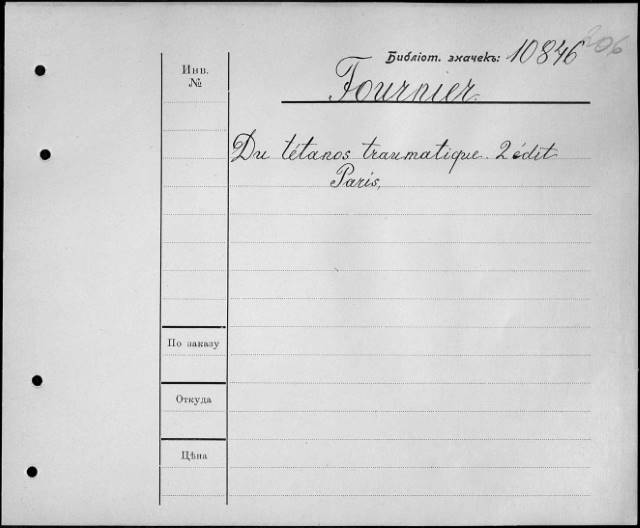 Библіот. значекъ: 10846
Инв.
№
Fournier.
Du tétanos traumatique. 2 édit
Paris,
По заказу
Откуда
Цѣна